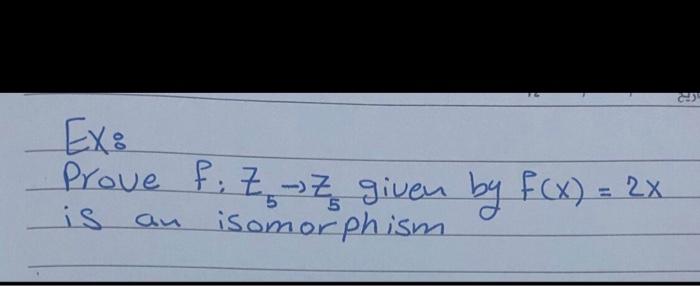 Ex:
Prove f: Z₅→Z₅ given by f(x) = 2x
is an isomorphism